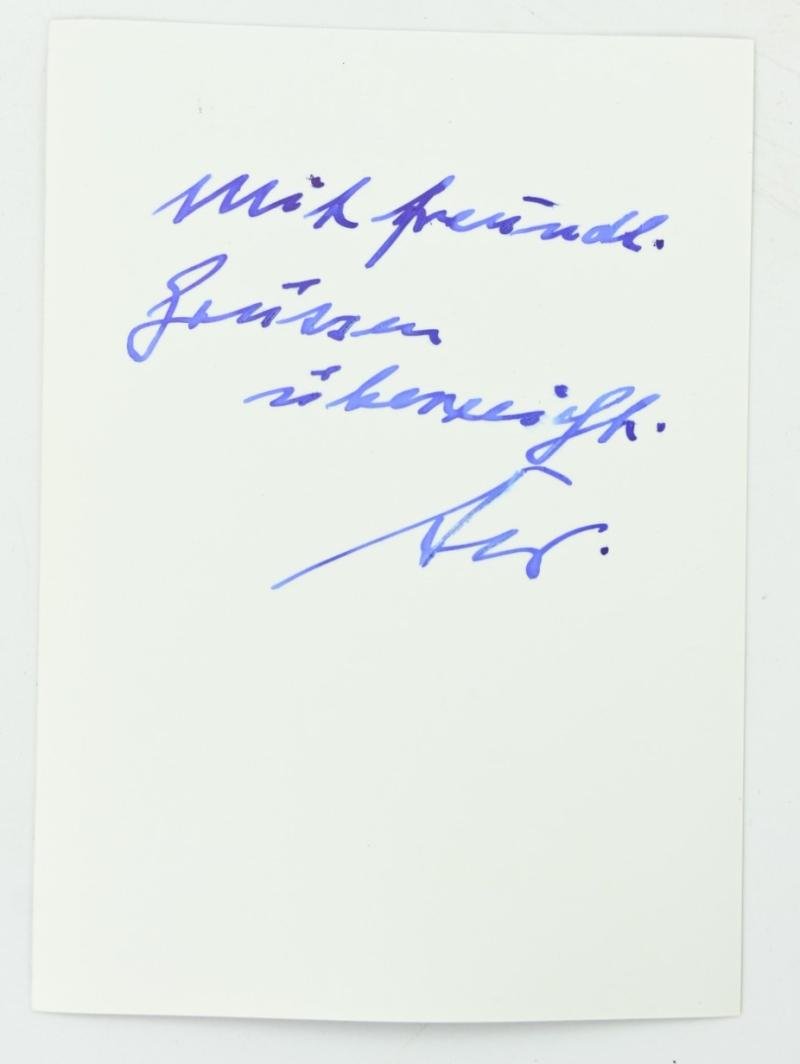 Mit freundl.
Grüssen
überreicht.